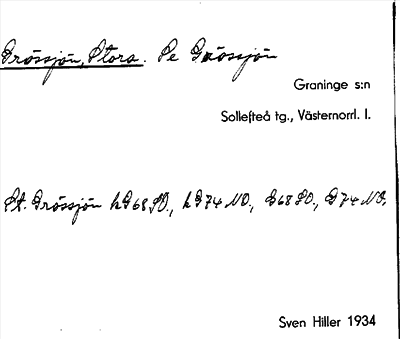 Grössjön, Stora. Se Grössjön
Graninge s:n
Sollefteå tg., Västernorrl. l.
St. Grössjön hG68SO., hG74NO., G68SO., G74NO.
Sven Hiller 1934